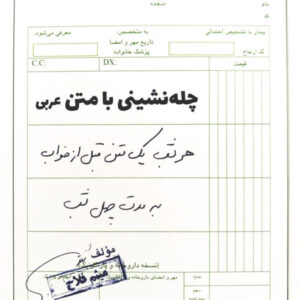 نام
صفحه
کد
بیمار با تشخیص احتمالی
به متخصص:
معرفی می‌شود.
کد ارجاع
تاریخ مهر و امضا
پزشک خانواده
C.C:
DX:
قیمت
چله‌نشینی با متن عربی
هر شب یک متن قبل از خواب
به مدت چهل شب
مؤلف:
میثم فلاح